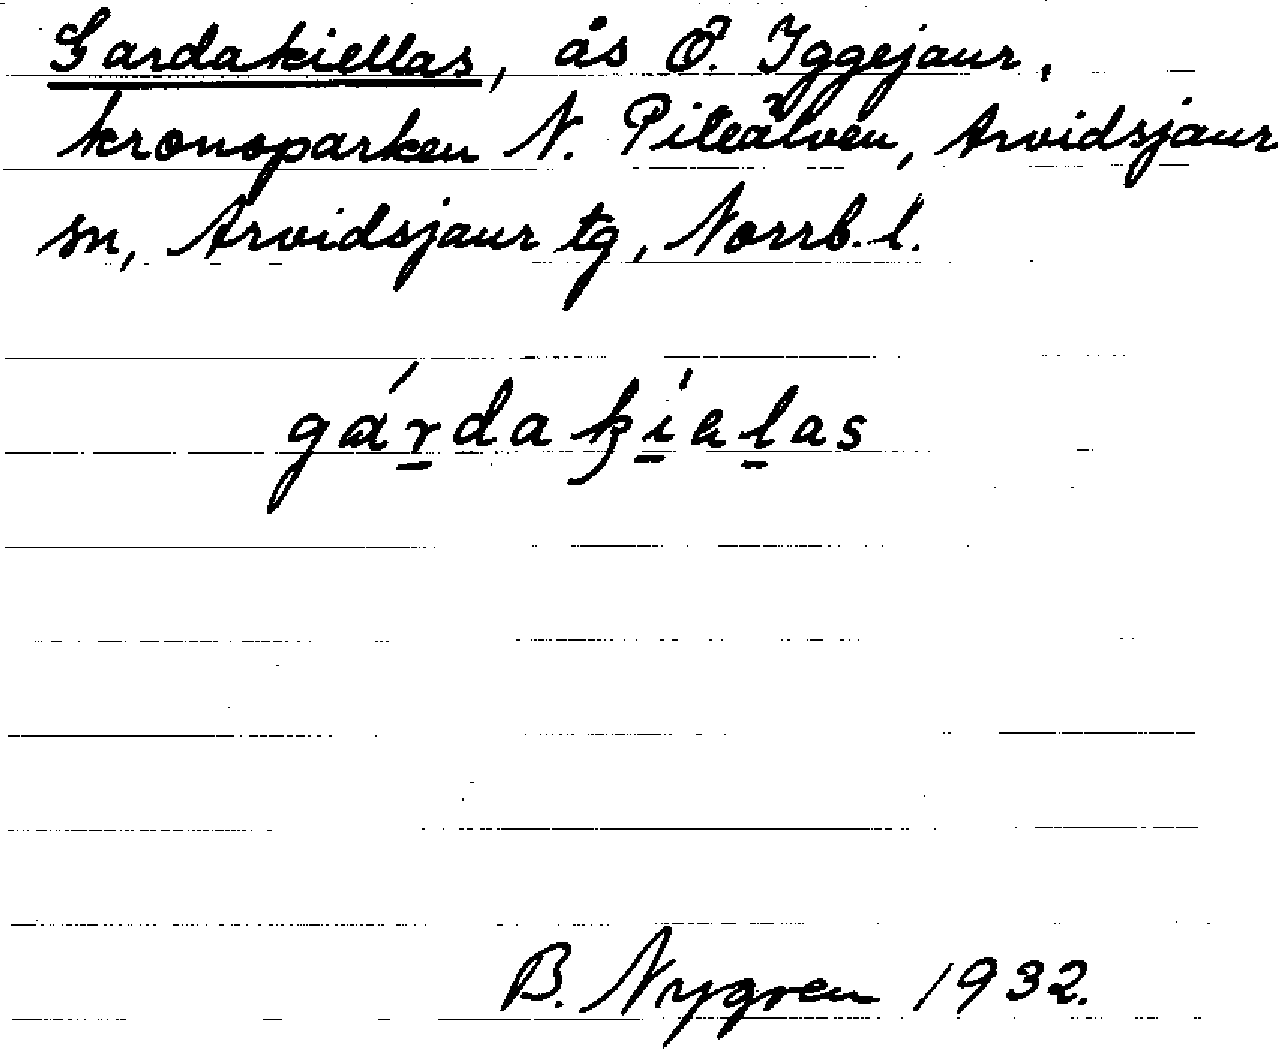 Gardakiellas, ås Ö. Iggejaur,
kronoparken N. Piteälven, Arvidsjaur
sn, Arvidsjaur tg, Norrb. l.
gárdakíelas
B. Nygren 1932.